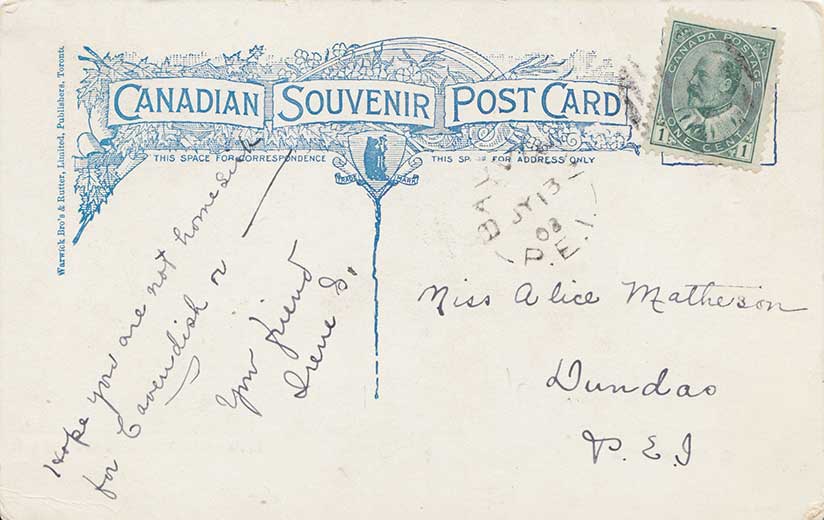 Warwick Bro's & Rutter, Limited, Publishers, Toronto.
CANADIAN SOUVENIR POST CARD
THIS SPACE FOR CORRESPONDENCE
THIS SPACE FOR ADDRESS ONLY
TRADE MARK
CANADA POSTAGE
1 ONE CENT 1
JY 13
08
P.E.I.
Hope you are not homesick
for Cavendish or —
Your friend
Irene S.
Miss Alice Matheson
Dundas
P.E.I